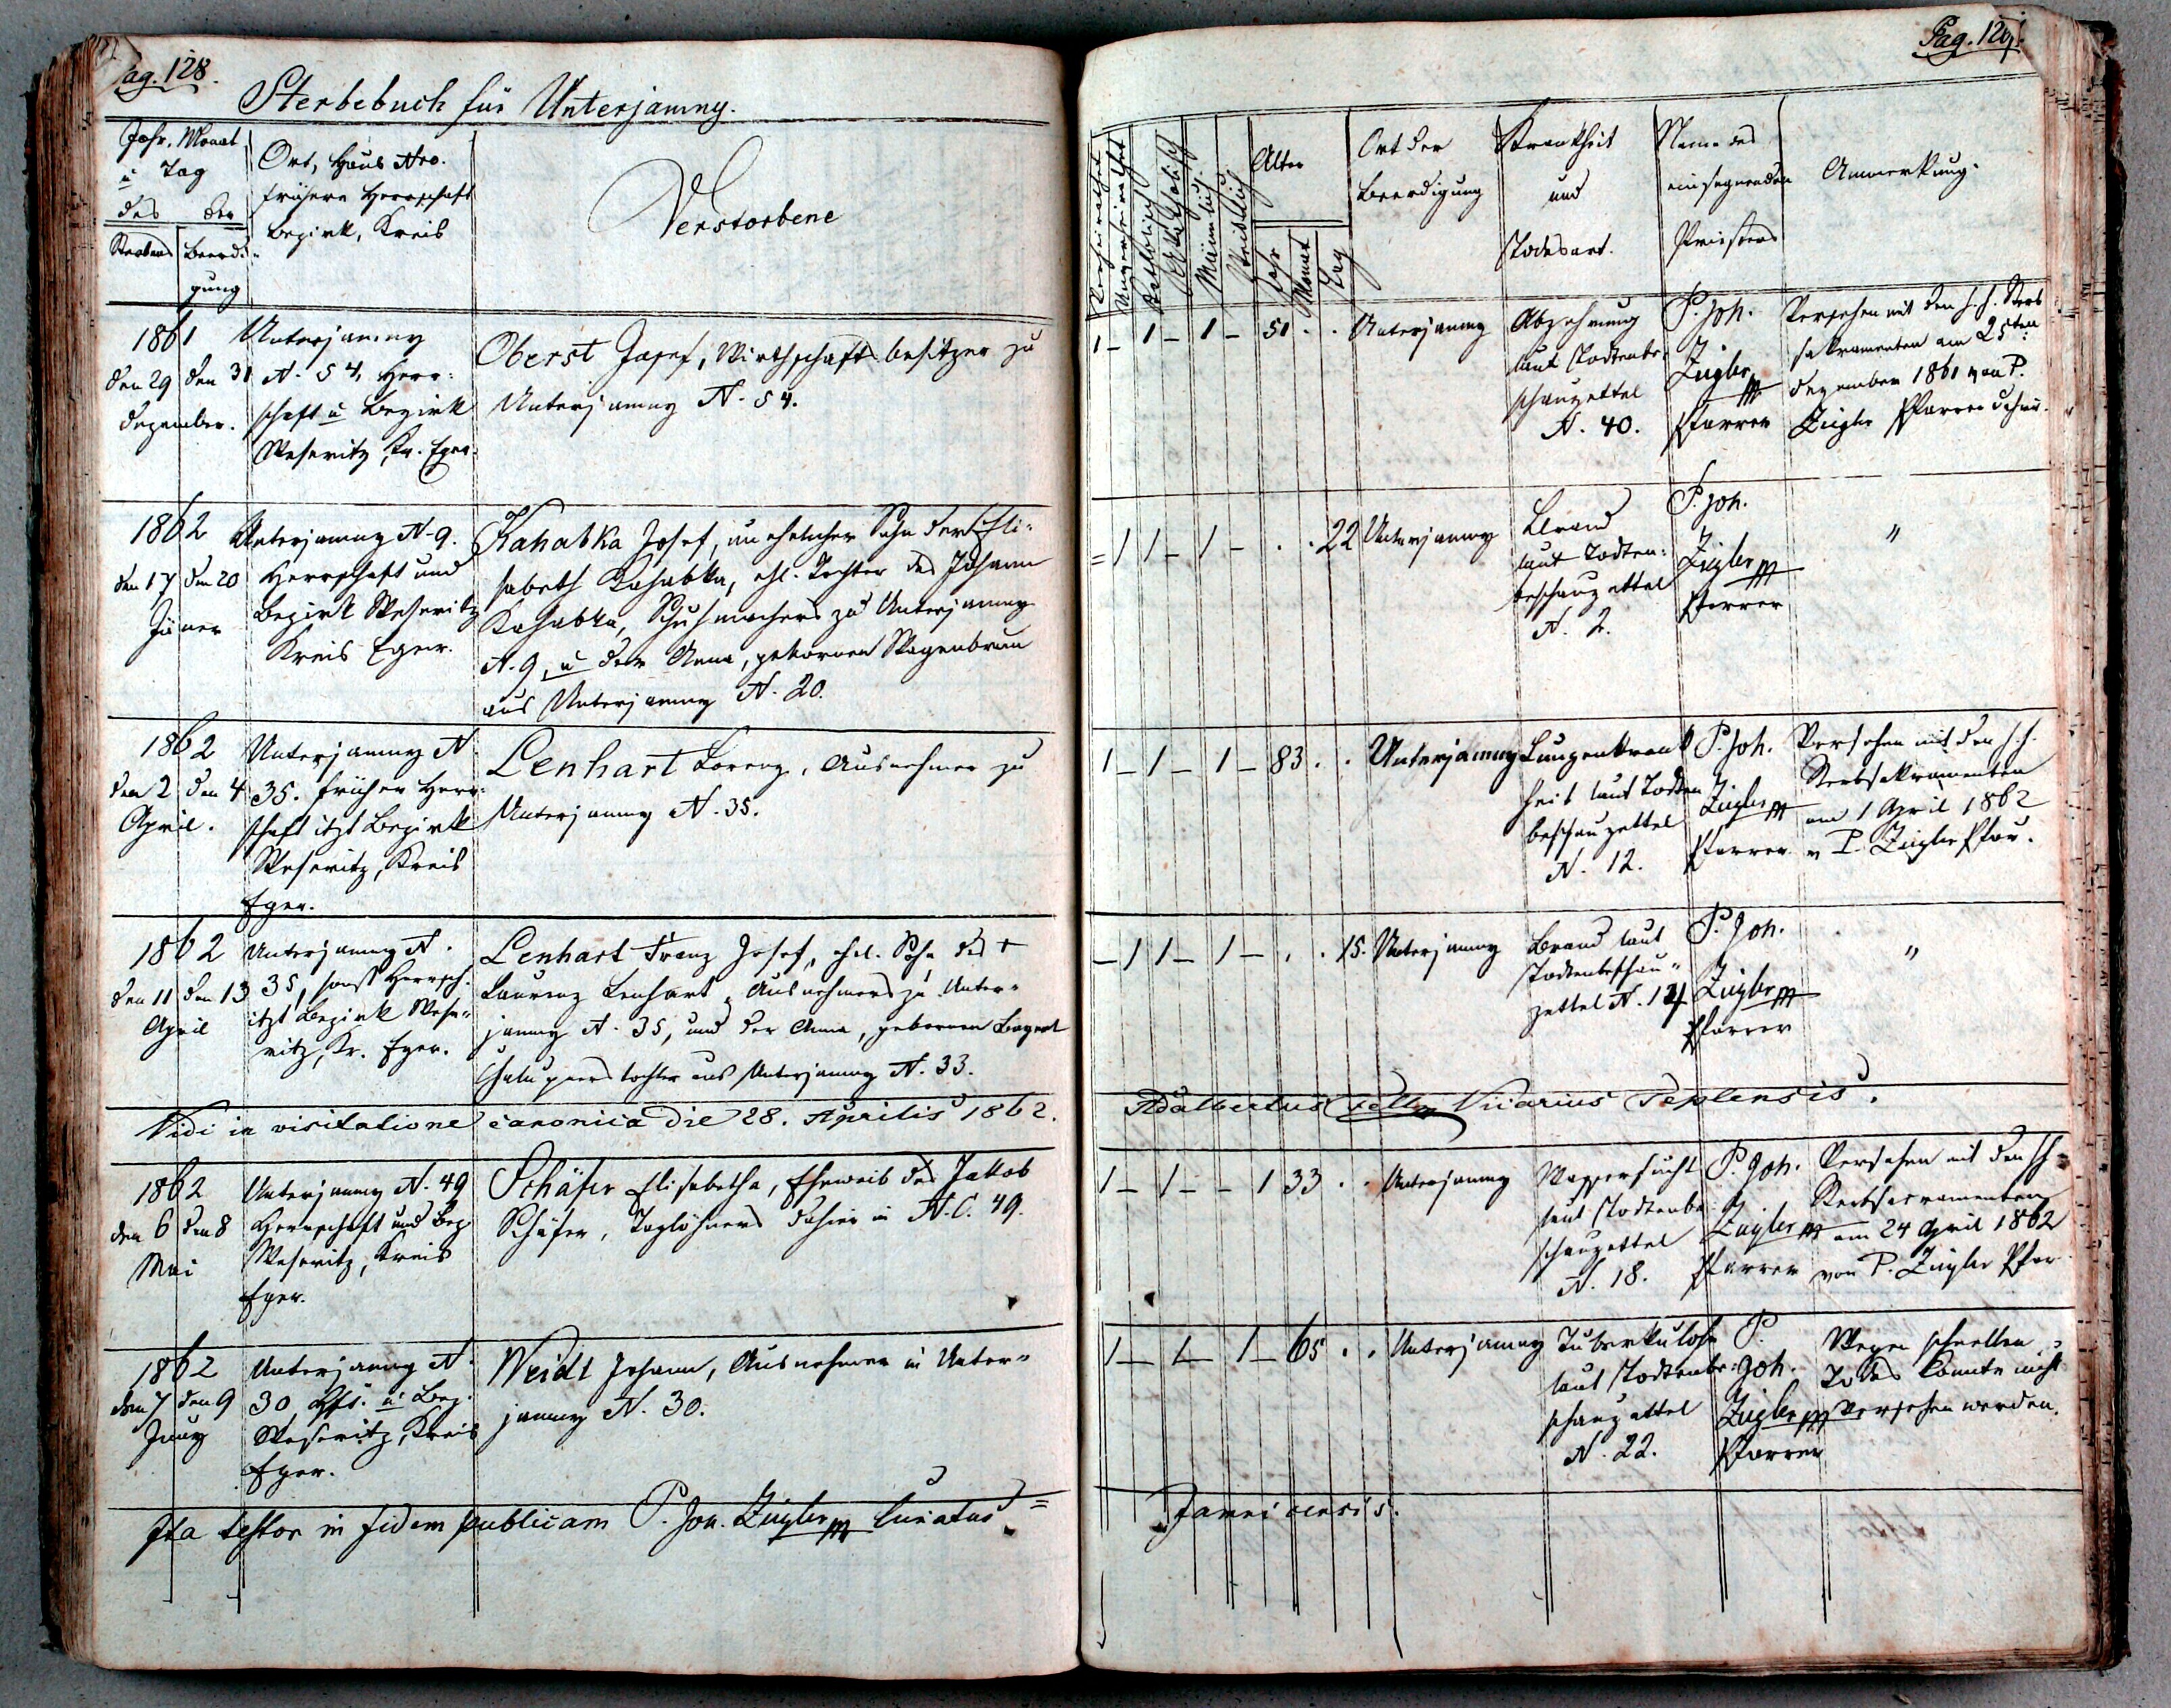 Pag. 128.
Sterbebuch für Unterjamny.
Jahr, Monat
u Tag
des der
Sterbens Beerdi-
gung
Ort, Haus Nro.
frühere Herrschaft
Bezirk, Kreis
Verstorbene
1861
den 29 den 31
Dezember.
Unterjamny
N. 54, Herr-
schaft u Bezirk
Weseritz, Kr. Eger.
Oberst Josef, Wirthschaftsbesitzer zu
Unterjamny N. 54.
1862
den 17 den 20
Jäner
Unterjamny N. 9.
Herrschaft und
Bezirk Weseritz
Kreis Eger.
Kahabka Josef, unehelicher Sohn der Eli-
sabeth Kahabka, ehl. Tochter des Johann
Kahabka, Schuhmachers zu Unterjamny
N. 9, u der Anna, gebornen Wagenbrun
aus Unterjamny N. 20.
1862
den 2 den 4
April.
Unterjamny N.
35. früher Herr-
schaft itzt Bezirk
Weseritz, Kreis
Eger.
Lenhart Lorenz, Ausnehmer zu
Unterjamny N. 35.
1862
den 11 den 13
April
Unterjamny N.
35, sonst Herrsch.
itzt Bezirk Wese-
ritz, Kr. Eger.
Lenhart Franz Josef, ehel. Sohn des +
Laurenz Lenhart, Ausnehmers zu Unter-
jamny N. 35, und der Anna, gebornen
Chaluppners tochter aus Unterjamny N. 33.
Vidi in visitatione canonica die 28. Aprilis 1862.
1862
den 6 den 8
Mai
Unterjamny N. 49
Herrschaft und Bez.
Weseritz, Kreis
Eger.
Schäfer Elisabetha, Eheweib des Jakob
Schäfer, Taglöhners dahier in N.C. 49.
1862
den 7 den 9
Juny
Unterjamny N.
30 Hft. u Bez.
Weseritz, Kreis
Eger.
Weidl Johann, Ausnehmer in Unter-
jamny N. 30.
Ita testor in fidem publicam P. Joh. Ziegler Curatus
Pag. 129.
Verheirathet
Unverheirathet
Katholisch
Männlich
Weiblich
Alter
Jahr
Monat
Tag
Ort der
Beerdigung
Krankheit
und
Todesart.
Name des
einsegnenden
Priesters
Anmerkung.
1 – 1 – 1 – 51 . . Unterjamny
Abzehrung
laut Todtenbe-
schauzettel
N. 40.
P. Joh.
Ziegler
Pfarrer
Versehen mit den h. h. Sterb
sakramenten am 25ten
Dezember 1861 von P.
Ziegler Pfarrer dahier.
= 1 1 – 1 – . . 22 Unterjamny
Brand
laut Todten-
beschauzettel
N. 2.
P. Joh.
Ziegler
Pfarrer
"
1 – 1 – 1 – 83 . . Unterjamny
Lungenkrank
heit laut Todten
beschauzettel
N. 12.
P. Joh.
Ziegler
Pfarrer
Versehen mit den h. h.
Sterbsakramenten
am 1 April 1862
v P. Ziegler Pfar.
– 1 1 – 1 – . . 15. Unterjamny
Brand laut
Todtenbeschau-
zettel N. 14
P. Joh.
Ziegler
Pfarrer
"
Adalbertus Vicarius Teplensis.
1 – 1 – – 1 33 . . Unterjamny
Wassersucht
laut Todtenbe-
schauzettel
N. 18.
P. Joh.
Ziegler
Pfarrer
Versehen mit den hh
Sterbsacramenten
am 24 April 1862
von P. Ziegler Pfar.
1 – 1 – 1 – 65 . . Unterjamny
Tuberkulose
laut Todtenbe-
schauzettel
N. 22.
P.
Joh.
Ziegler
Pfarrer
Wegen schnellen
Todes konnte nicht
versehen werden.
Jamnicensis.